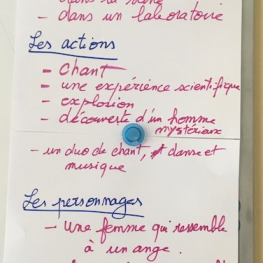 dans la scène
– dans un laboratoire
Les actions
– chant
– une expérience scientifique
– explosion
– découverte d'un homme
mystérieux
– un duo de chant, danse et
musique
Les personnages
– une femme qui ressemble
à un ange.